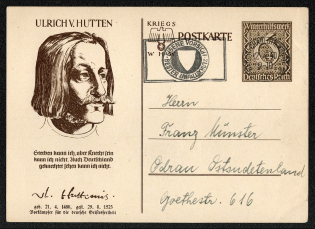 ULRICH V. HUTTEN
Sterben kann ich, aber Knecht sein
kann ich nicht. Auch Deutschland
geknechtet sehen kann ich nicht.
geb. 21. 4. 1488, gest. 29. 8. 1523
Vorkämpfer für die deutsche Geistesfreiheit
KRIEGS
W H
POSTKARTE
Winterhilfswerk
6
Deutsches Reich
Herrn
Franz Münster
Odrau Ostsudetenland
Goethestr. 616